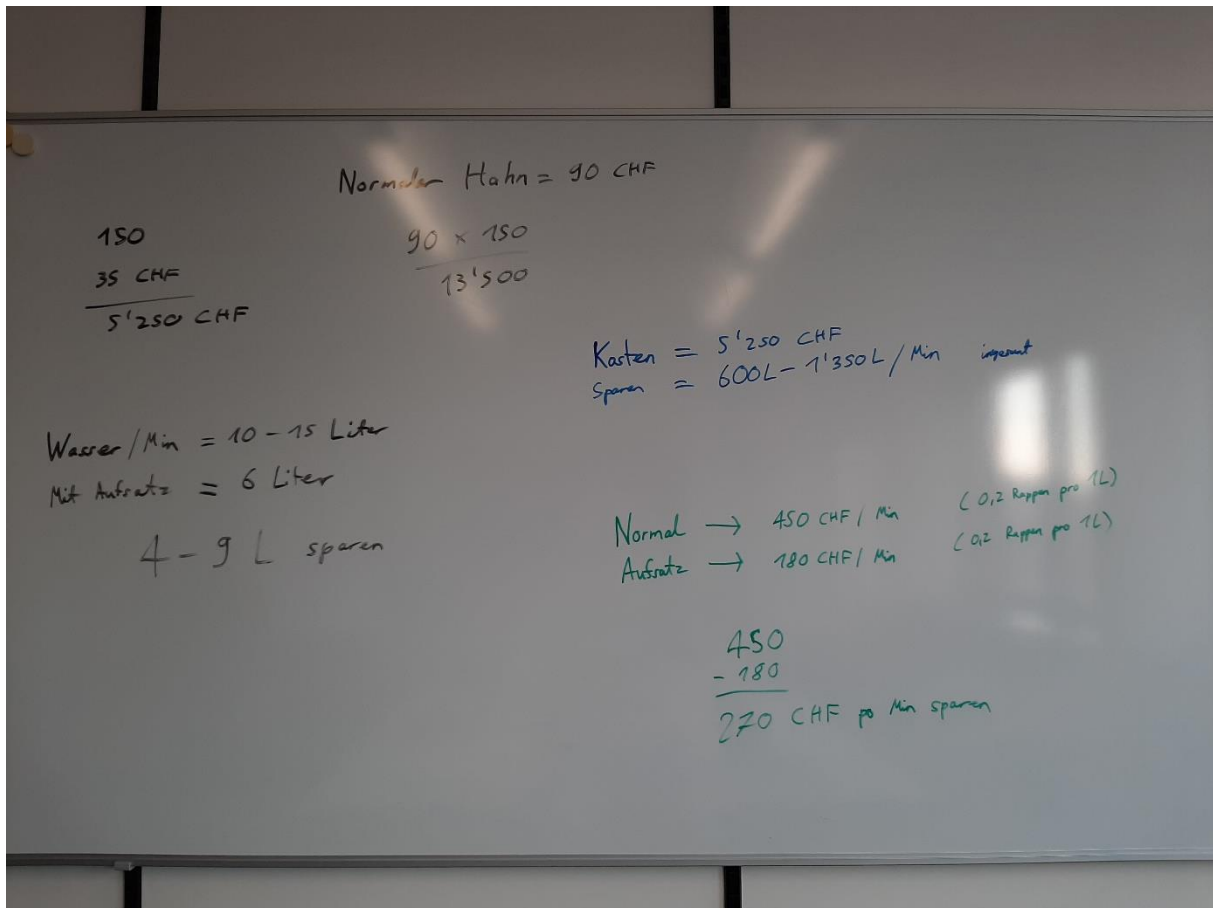 Normaler Hahn = 90 CHF
150
35 CHF
5'250 CHF
90 x 150
13'500
Kosten = 5'250 CHF
Sparen = 600L - 1'350L / Min
Wasser/Min = 10 - 15 Liter
Mit Aufsatz = 6 Liter
4 - 9 L sparen
Normal → 450 CHF / Min (0,2 Rappen pro 1L)
Aufsatz → 180 CHF / Min (0,2 Rappen pro 1L)
450
- 180
270 CHF po Min sparen